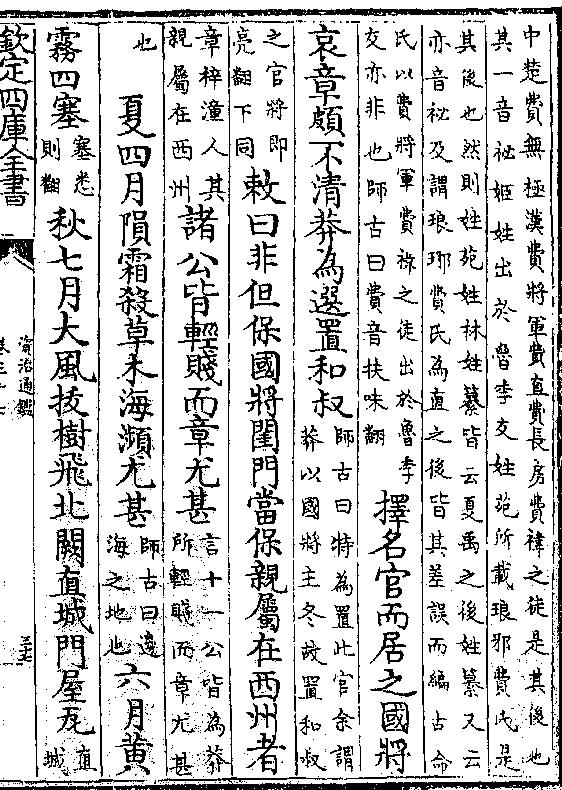 中楚費無極漢費將軍費直費長房費禕之徒是其後也
其一音祕姬姓出於魯季友姓苑所載琅邪費氏是
其後也然則姓苑姓林姓纂皆云夏禹之後姓纂又云
亦音祕及謂琅琊費氏為直之後皆其差誤而編古命
氏以費將軍費祿之徒出於魯季
友亦非也師古曰費音扶味翻
擇名官而居之國將
哀章頗不清莽為選置和叔
師古曰特為置此官余謂
莽以國將主冬故置和叔
之官將即
亮翻下同
敕曰非但保國將閨門當保親屬在西州者
章梓潼人其
親屬在西州
諸公皆輕賤而章尤甚
言十一公皆為莽
所輕賤而章尤甚
也
夏四月隕霜殺草木海瀕尤甚
師古曰邊
海之地也
六月黃
霧四塞
塞悉
則翻
秋七月大風拔樹飛北闕直城門屋瓦
直
城
欽定四庫全書
資治通鑑
卷三十七